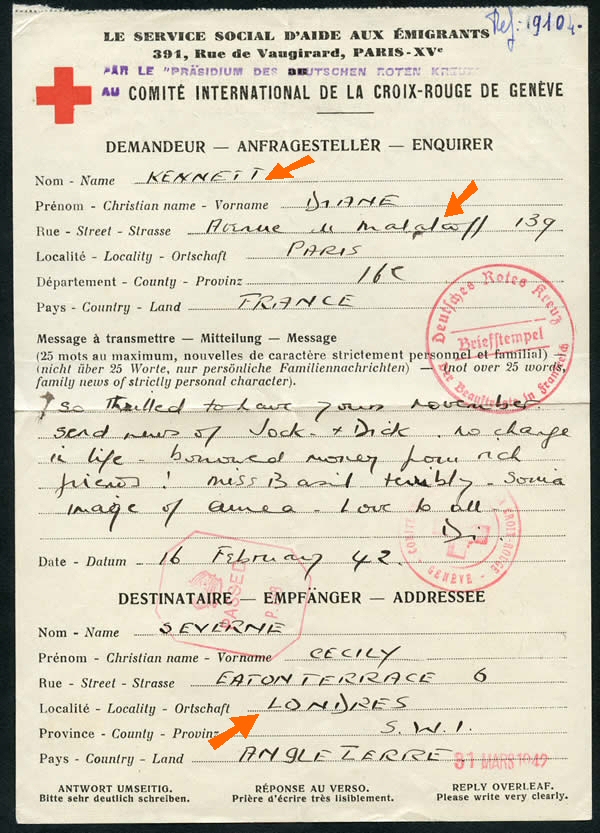 Ref: 19104-
LE SERVICE SOCIAL D'AIDE AUX ÉMIGRANTS
391, Rue de Vaugirard, PARIS-XVe
PAR LE "PRÄSIDIUM DES DEUTSCHEN ROTEN KREUZ
AU COMITÉ INTERNATIONAL DE LA CROIX-ROUGE DE GENÈVE
DEMANDEUR — ANFRAGESTELLER — ENQUIRER
Nom - Name KENNETT
Prénom - Christian name - Vorname DIANE
Rue - Street - Strasse Avenue Malakoff 139
Localité - Locality - Ortschaft PARIS
Département - County - Provinz 16e
Pays - Country - Land FRANCE
Deutsches Rotes Kreuz
Briefstempel
Der Beauftragte in Frankreich
Message à transmettre — Mitteilung — Message
(25 mots au maximum, nouvelles de caractère strictement personnel et familial) —
(nicht über 25 Worte, nur persönliche Familiennachrichten) — (not over 25 words,
family news of strictly personal character).
so thrilled to have yours november.
send news of Jock + Dick. no change
in life - borrowed money from rich
friends! miss Basil terribly - Sonia
image of - Love to all -
Di.
COMITÉ CROIX-ROUGE GENÈVE
Date - Datum 16 February 42.
PASSED
DESTINATAIRE — EMPFÄNGER — ADDRESSEE
Nom - Name SEVERNE
Prénom - Christian name - Vorname CECILY
Rue - Street - Strasse EATON TERRACE 6
Localité - Locality - Ortschaft LONDRES
Province - County - Provinz S.W.1.
Pays - Country - Land ANGLETERRE
31 MARS 1942
ANTWORT UMSEITIG. RÉPONSE AU VERSO. REPLY OVERLEAF.
Bitte sehr deutlich schreiben. Prière d'écrire très lisiblement. Please write very clearly.